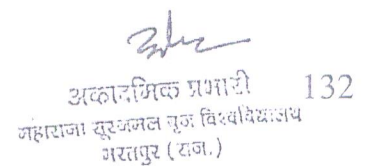 अकादमिक प्रभारी 132
महाराजा सूरजमल बृज विश्वविद्यालय
भरतपुर (राज.)